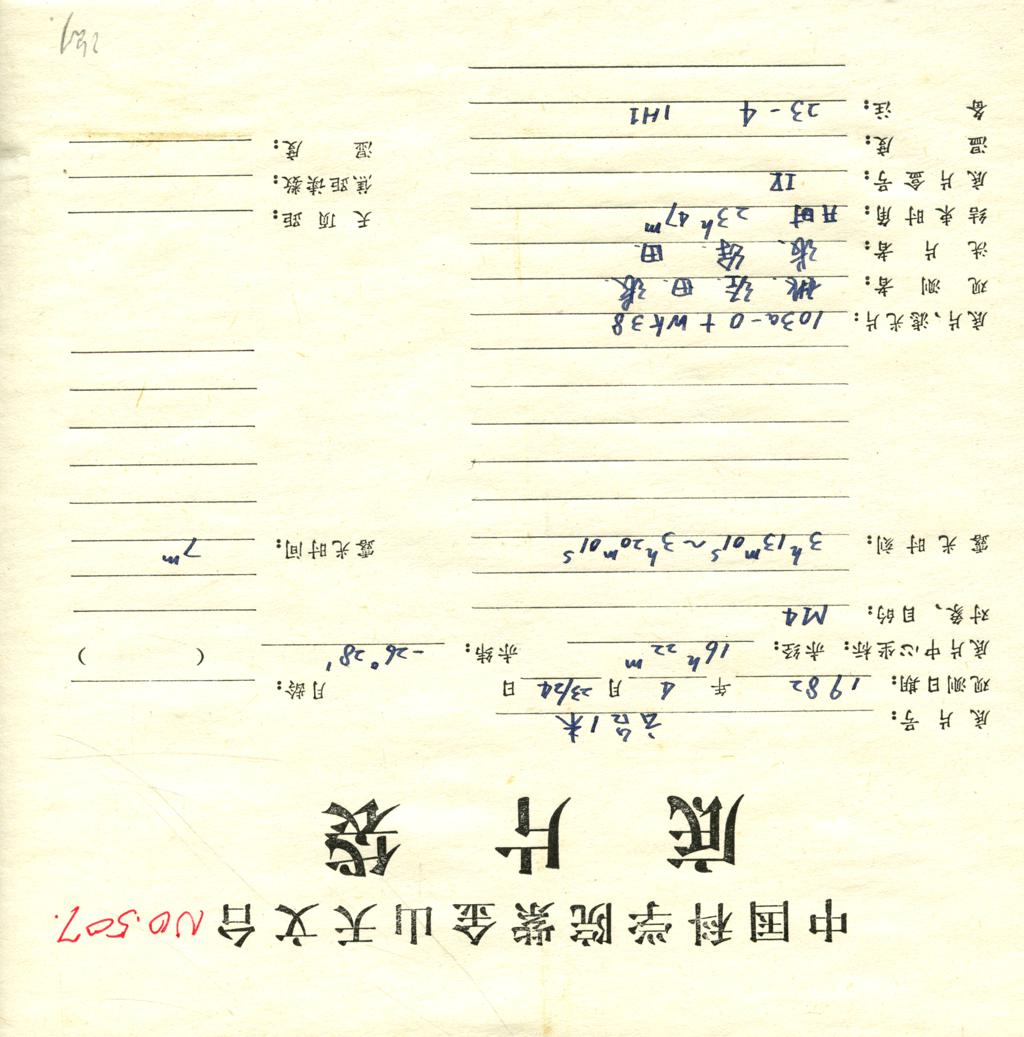 中国科学院紫金山天文台 NO.507.
底片袋
底片号： 云台1米
观测日期： 1982 年 4 月 23/24 日 月龄：
底片中心坐标： 赤经： 16h 22m 赤纬： -26° 28′ （ ）
对象、目的： M4
露光时刻： 3h13m01s～3h20m01s 露光时间： 7m
底片、滤光片： 103a-O + WK38
观测者： 田 张
洗片者： 张 田
结束时角： 月时 23h47m 天顶距：
底片盒号： IV 焦距读数：
温度： 湿度：
备注： 23-4 1H1